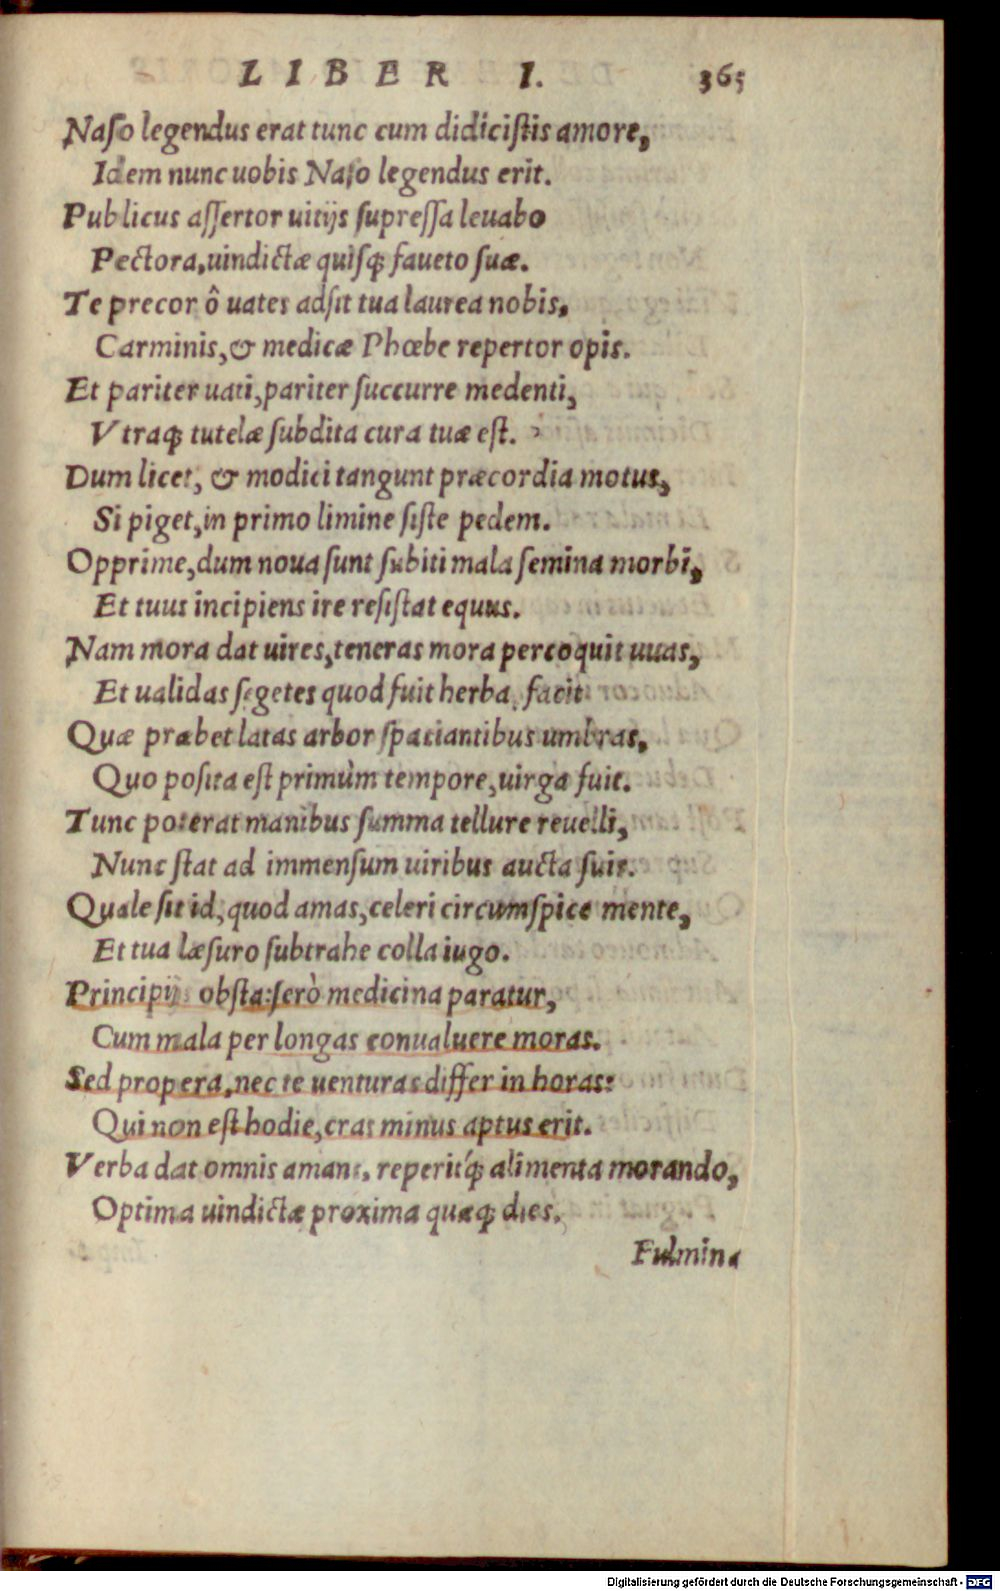 LIBER I. 365
Naſo legendus erat tunc cum didiciſtis amore,
Idem nunc uobis Naſo legendus erit.
Publicus aſſertor uitijs ſupreſſa leuabo
Pectora, uindictæ quiſq; faueto ſuæ.
Te precor ô uates adſit tua laurea nobis,
Carminis, & medicæ Phœbe repertor opis.
Et pariter uati, pariter ſuccurre medenti,
Vtraq; tutelæ ſubdita cura tuæ eſt.
Dum licet, & modici tangunt præcordia motus,
Si piget, in primo limine ſiſte pedem.
Opprime, dum noua ſunt ſubiti mala ſemina morbi,
Et tuus incipiens ire reſiſtat equus.
Nam mora dat uires, teneras mora percoquit uuas,
Et ualidas ſegetes quod fuit herba, facit
Quæ præbet latas arbor ſpatiantibus umbras,
Quo poſita eſt primùm tempore, uirga fuit.
Tunc poterat manibus ſumma tellure reuelli,
Nunc ſtat ad immenſum uiribus aucta ſuis.
Quale ſit id, quod amas, celeri circumſpice mente,
Et tua læſuro ſubtrahe colla iugo.
Principijs obſta: ſerò medicina paratur,
Cum mala per longas conualuere moras.
Sed propera, nec te uenturas differ in horas:
Qui non eſt hodie, cras minus aptus erit.
Verba dat omnis amans, reperitq́; alimenta morando,
Optima uindictæ proxima quæq; dies.
Fulmina
Digitalisierung gefördert durch die Deutsche Forschungsgemeinschaft - DFG